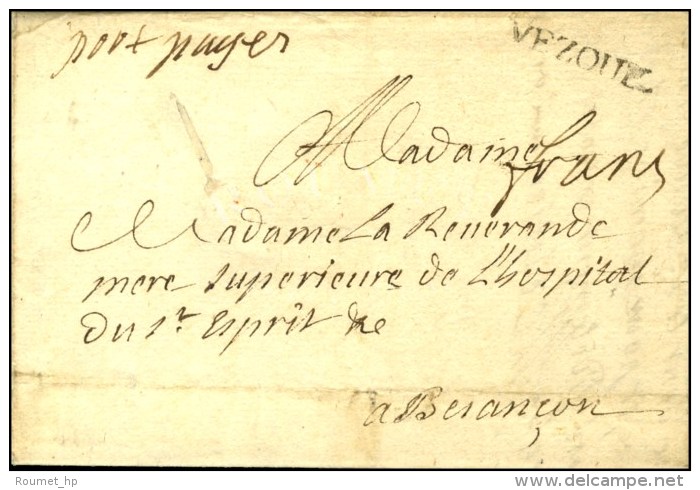 port payer
VEZOUL
Madame
franc
Madame La Reuerande
mere superieure de L'hospital
du st Esprit &c
a Besançon
Roumet_hp